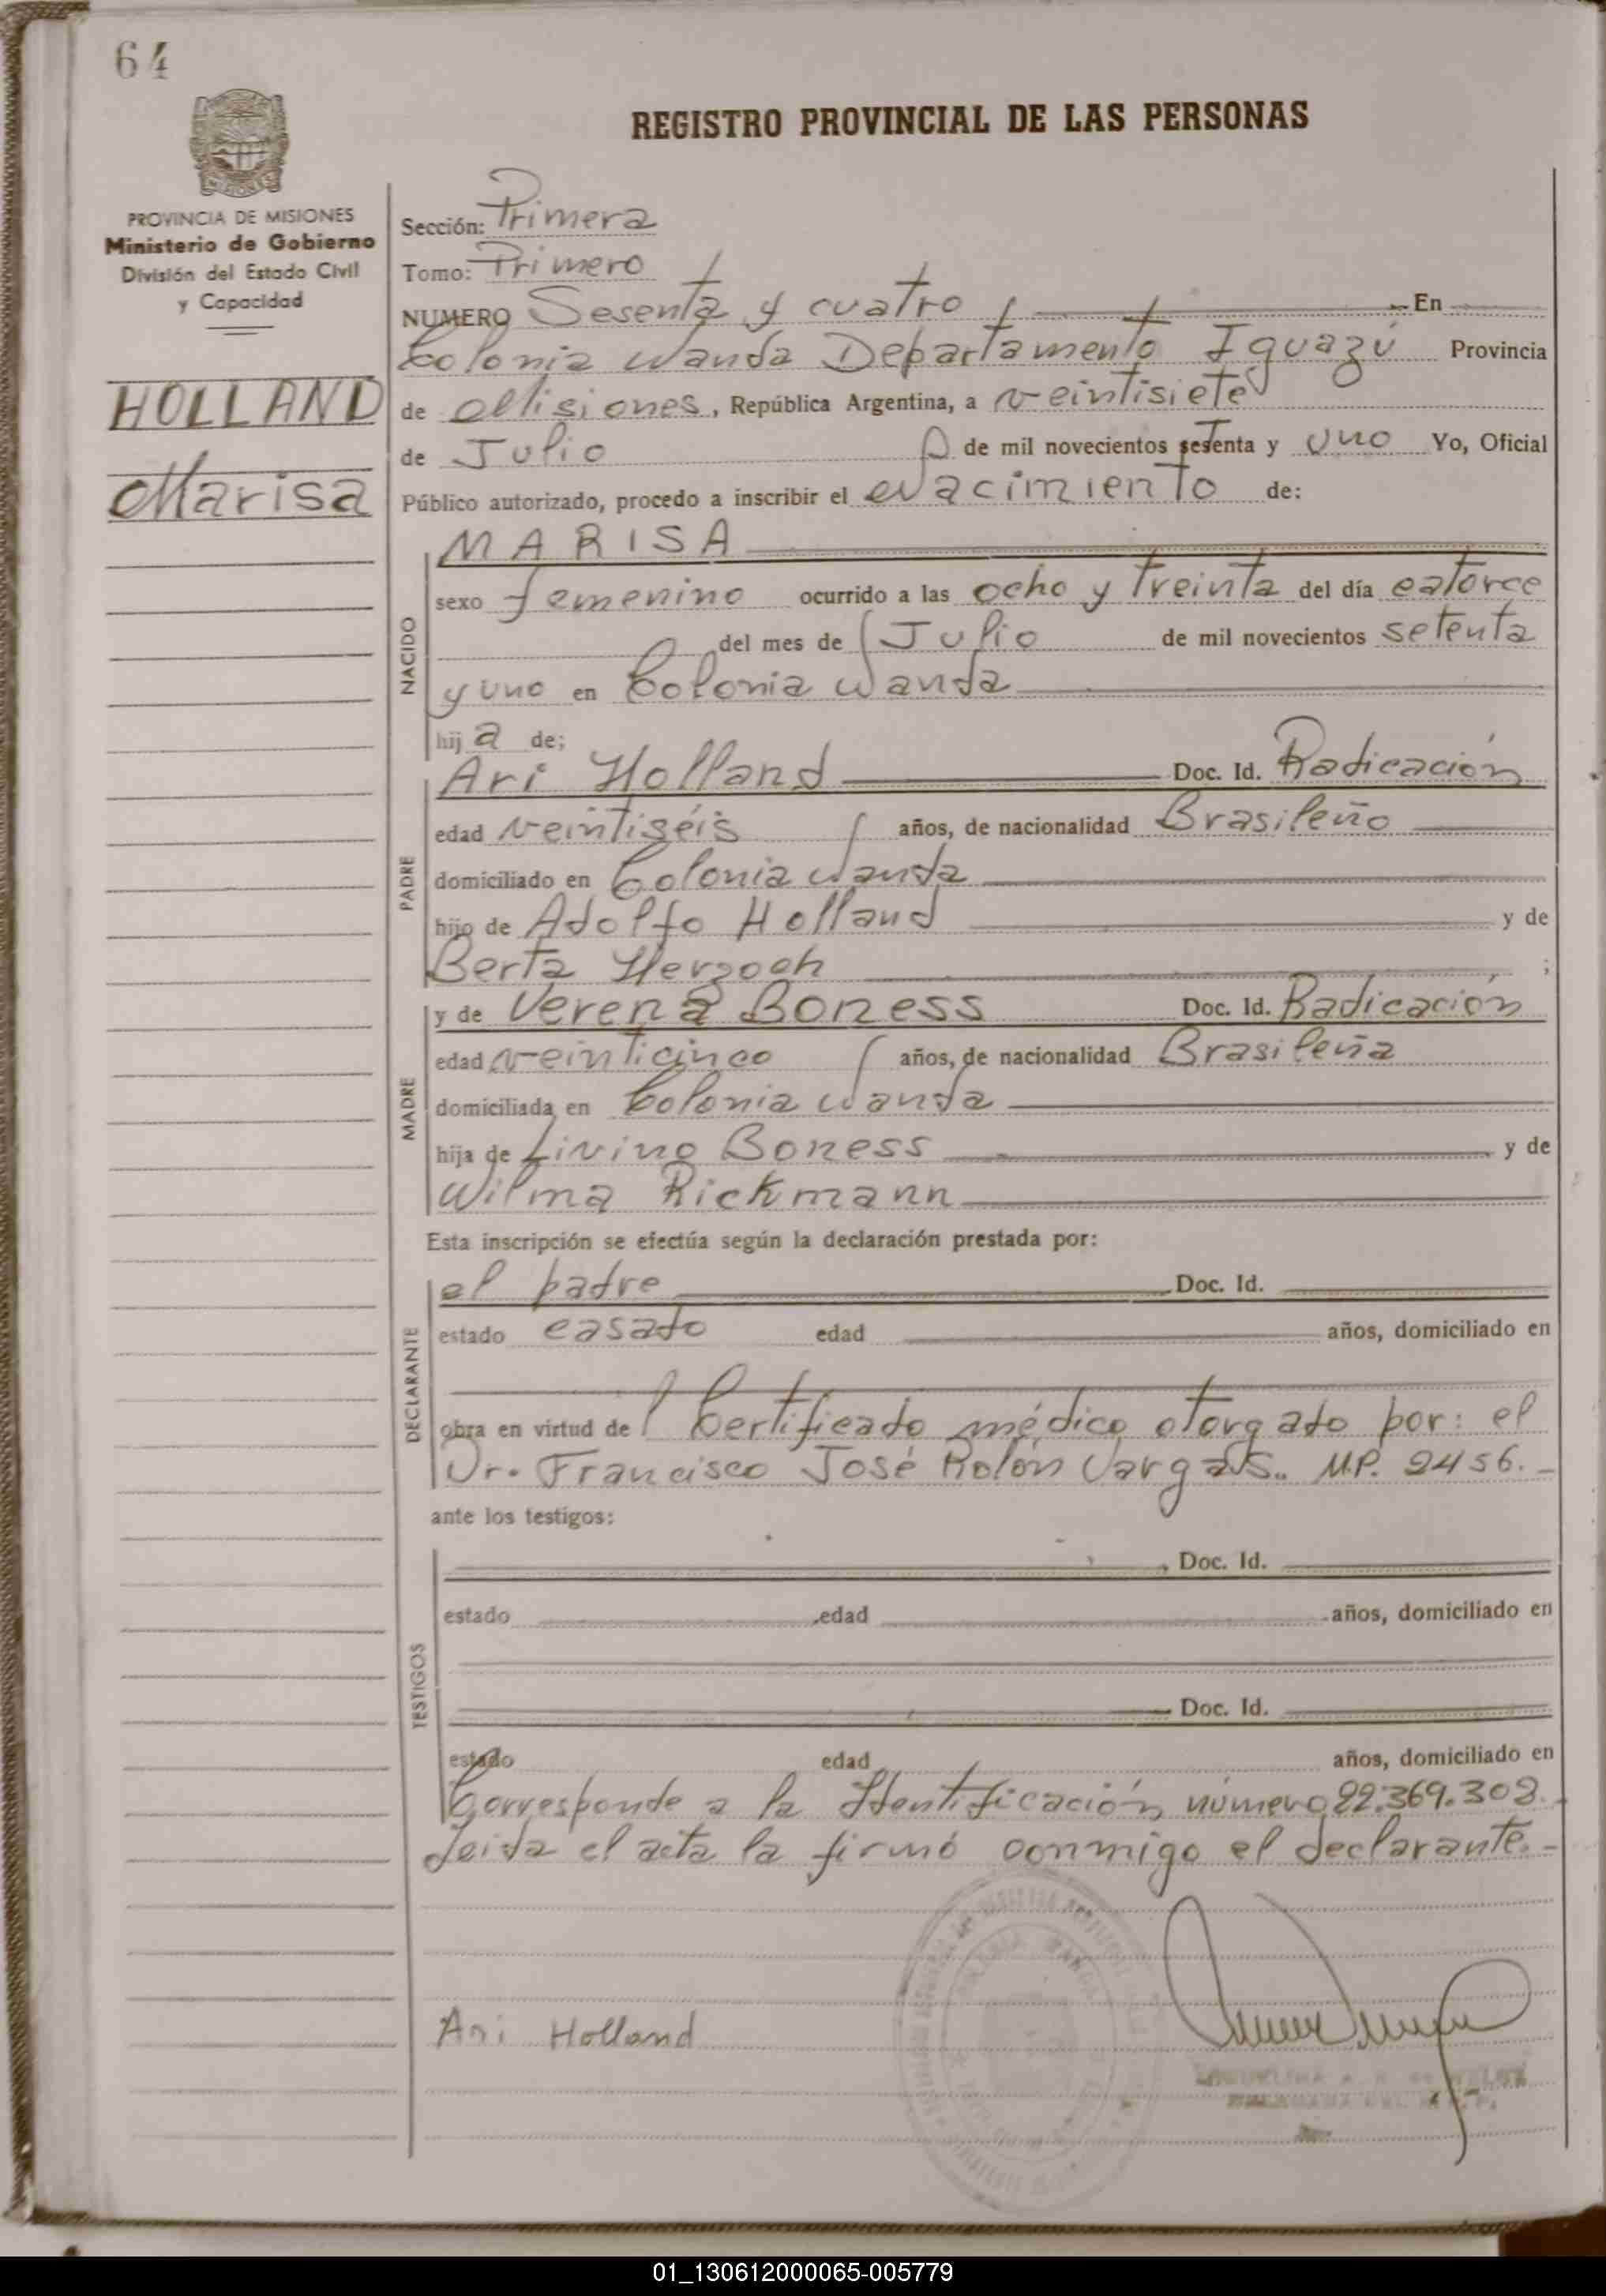 64
REGISTRO PROVINCIAL DE LAS PERSONAS
PROVINCIA DE MISIONES
Ministerio de Gobierno
División del Estado Civil
y Capacidad
HOLLAND
Marisa
Sección: Primera
Tomo: Primero
NUMERO Sesenta y cuatro En
Colonia Wanda Departamento Iguazú Provincia
de Misiones, República Argentina, a veintisiete
de Julio de mil novecientos setenta y uno Yo, Oficial
Público autorizado, procedo a inscribir el Nacimiento de:
NACIDO
MARISA
sexo femenino ocurrido a las ocho y treinta del día catorce
del mes de Julio de mil novecientos setenta
y uno en Colonia Wanda
hija de;
PADRE
Ari Holland Doc. Id. Radicación
edad veintiséis años, de nacionalidad Brasileño
domiciliado en Colonia Wanda
hijo de Adolfo Holland y de
Berta Herzoch ;
MADRE
y de Verena Boness Doc. Id. Radicación
edad veinticinco años, de nacionalidad Brasileña
domiciliada en Colonia Wanda
hija de Livino Boness y de
Wilma Rickmann
Esta inscripción se efectúa según la declaración prestada por:
DECLARANTE
el padre Doc. Id.
estado casado edad años, domiciliado en
obra en virtud de Certificado médico otorgado por: el
Dr. Francisco José Rolón Vargas.. M.P. 2456.-
ante los testigos:
TESTIGOS
Doc. Id.
estado edad años, domiciliado en
Doc. Id.
estado edad años, domiciliado en
Corresponde a la Identificación número 22.369.308.
Leida el acta la firmó conmigo el declarante.-
Ari Holland
01_130612000065-005779